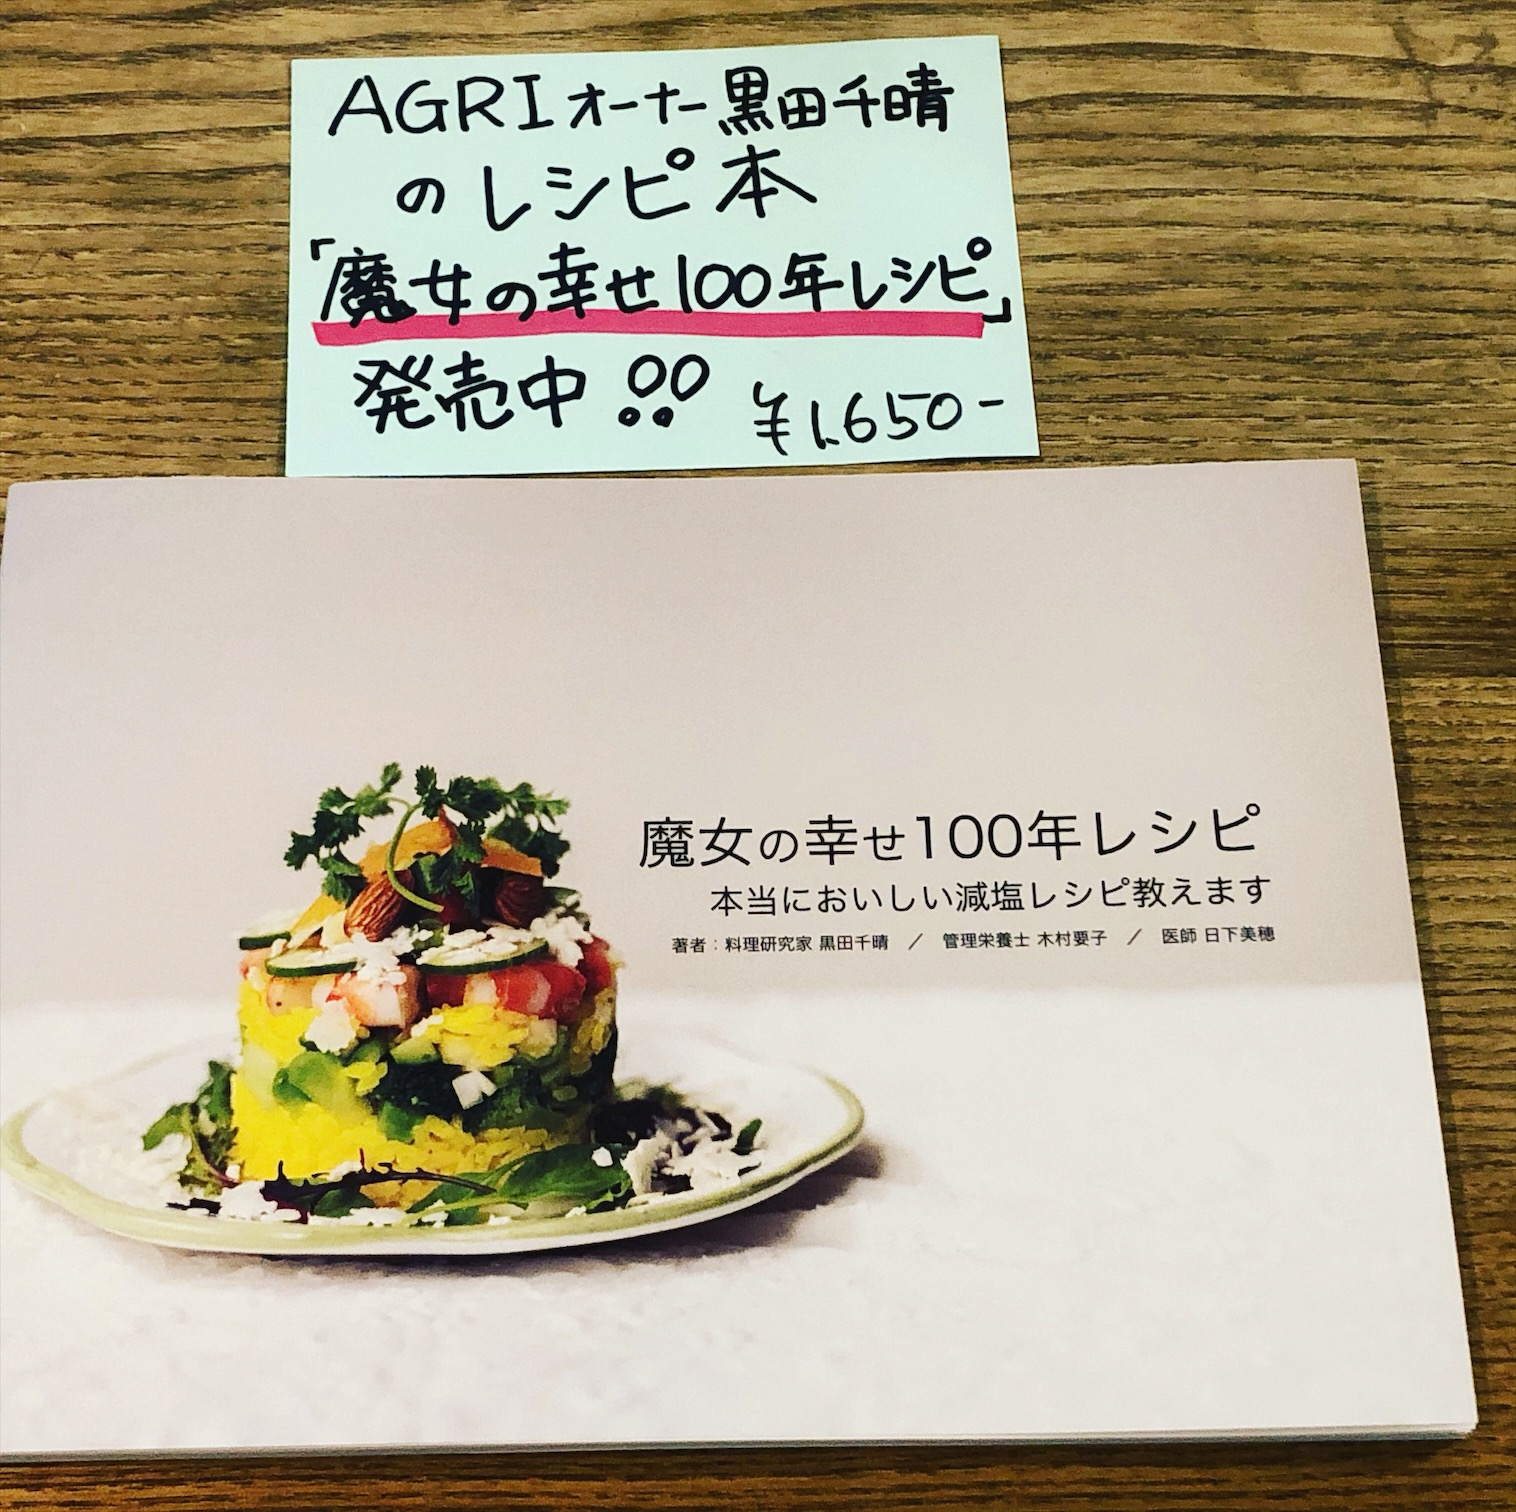 AGRIオーナー黒田千晴
のレシピ本
「魔女の幸せ100年レシピ」
発売中!! ¥1,650-
魔女の幸せ100年レシピ
本当においしい減塩レシピ教えます
著者：料理研究家 黒田千晴 ／ 管理栄養士 木村要子 ／ 医師 日下美穂